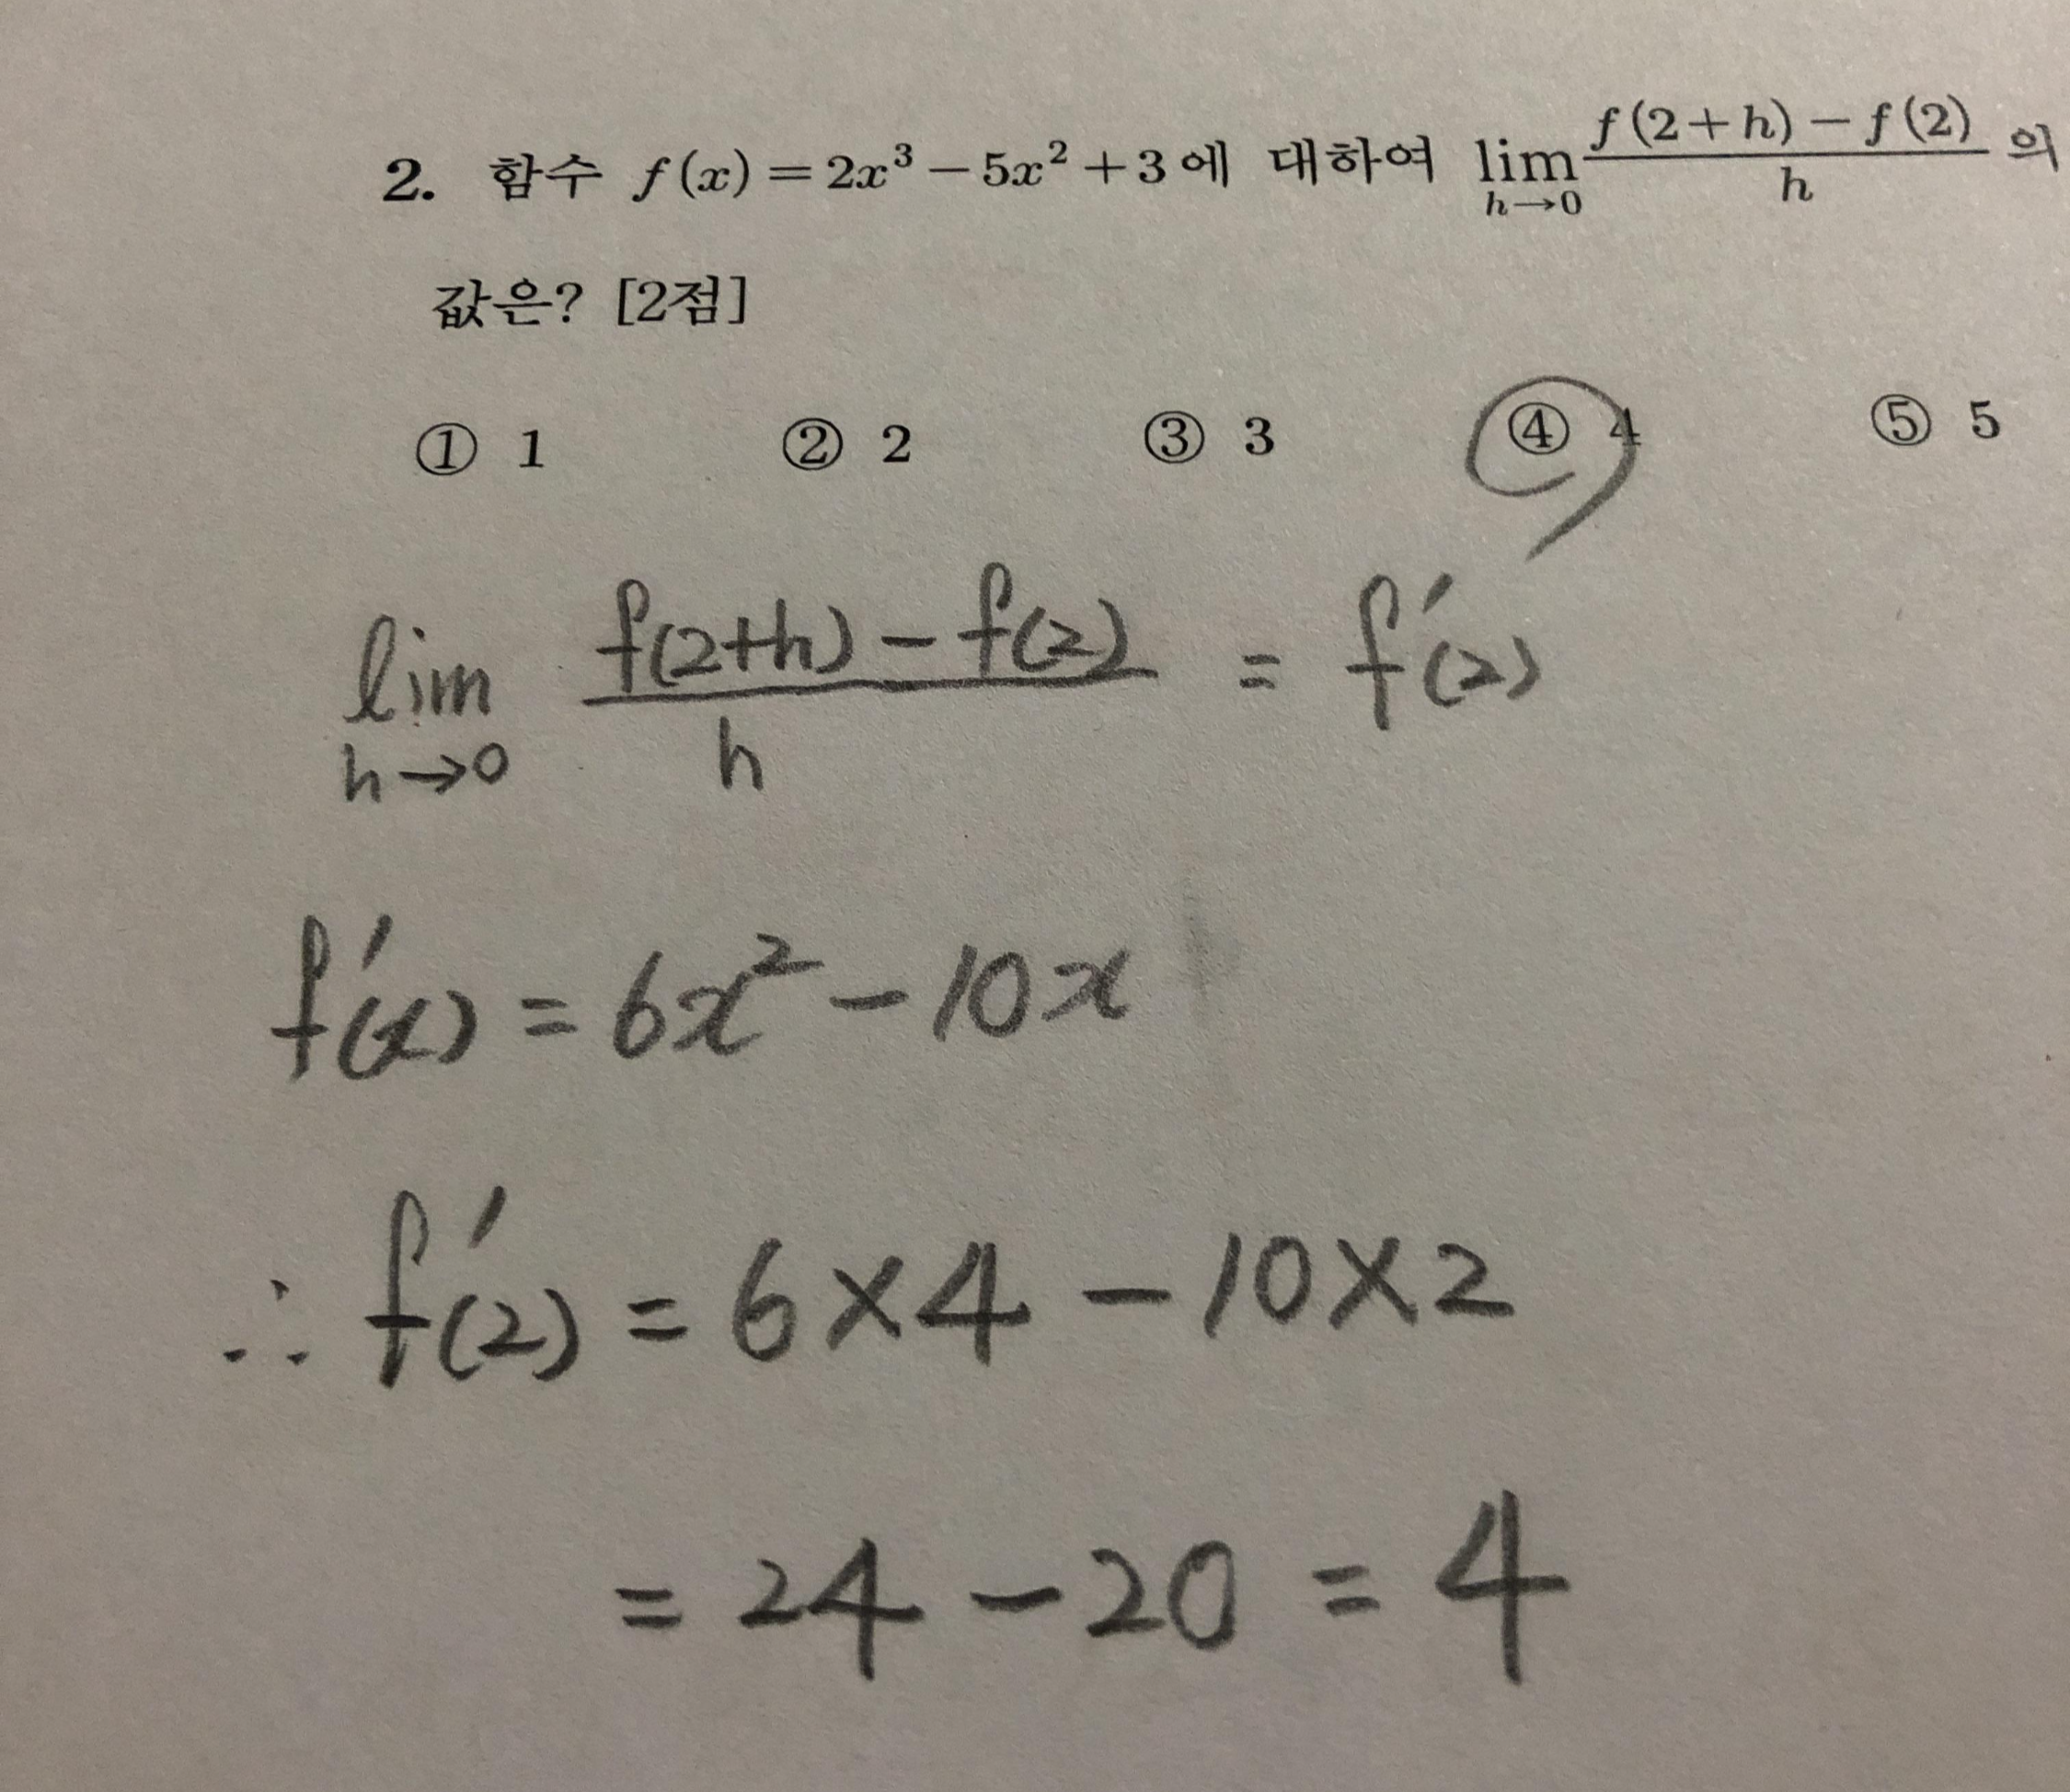 2. 함수 f(x) = 2x³ − 5x² + 3에 대하여 lim_{h→0} \frac{f(2+h) − f(2)}{h} 의
값은? [2점]
① 1 ② 2 ③ 3 ④ 4 ⑤ 5
lim_{h→0} \frac{f(2+h) − f(2)}{h} = f'(2)
f'(x) = 6x² − 10x
∴ f'(2) = 6×4 − 10×2
= 24 − 20 = 4